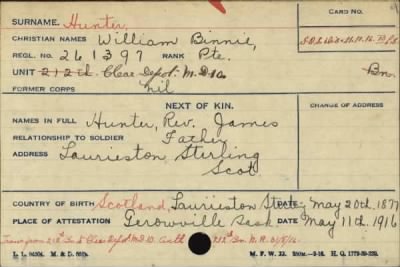 SURNAME. Hunter,
CARD NO.
CHRISTIAN NAMES William Binnie,
REGL. NO. 261397 RANK Pte.
UNIT 212th. Clear. Depot. M.D. 10 Bn.
FORMER CORPS nil
NEXT OF KIN.
CHANGE OF ADDRESS
NAMES IN FULL Hunter, Rev. James
RELATIONSHIP TO SOLDIER Father
ADDRESS Laurieston Sterling
Scot
COUNTRY OF BIRTH Scotland, Laurieston May 20th. 1877
PLACE OF ATTESTATION Sask. DATE May 11th. 1916
Trans from Bn. to Clear Depot M.D. 10 Auth
M. & D. M. F. W. 22. H. Q.